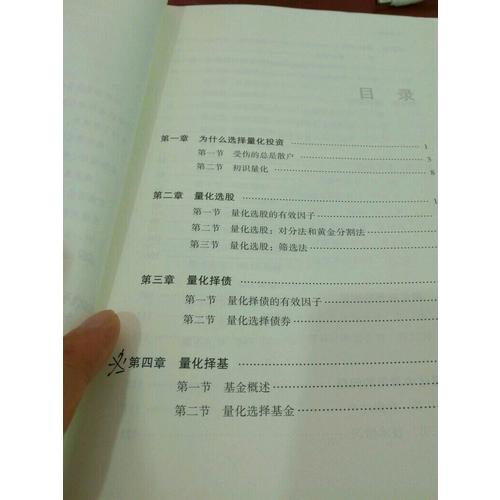 目 录
第一章 为什么选择量化投资 1
第一节 受伤的总是散户 3
第二节 初识量化 8
第二章 量化选股 1
第一节 量化选股的有效因子
第二节 量化选股:对分法和黄金分割法
第三节 量化选股:筛选法
第三章 量化择债
第一节 量化择债的有效因子
第二节 量化选择债券
第四章 量化择基
第一节 基金概述
第二节 量化选择基金